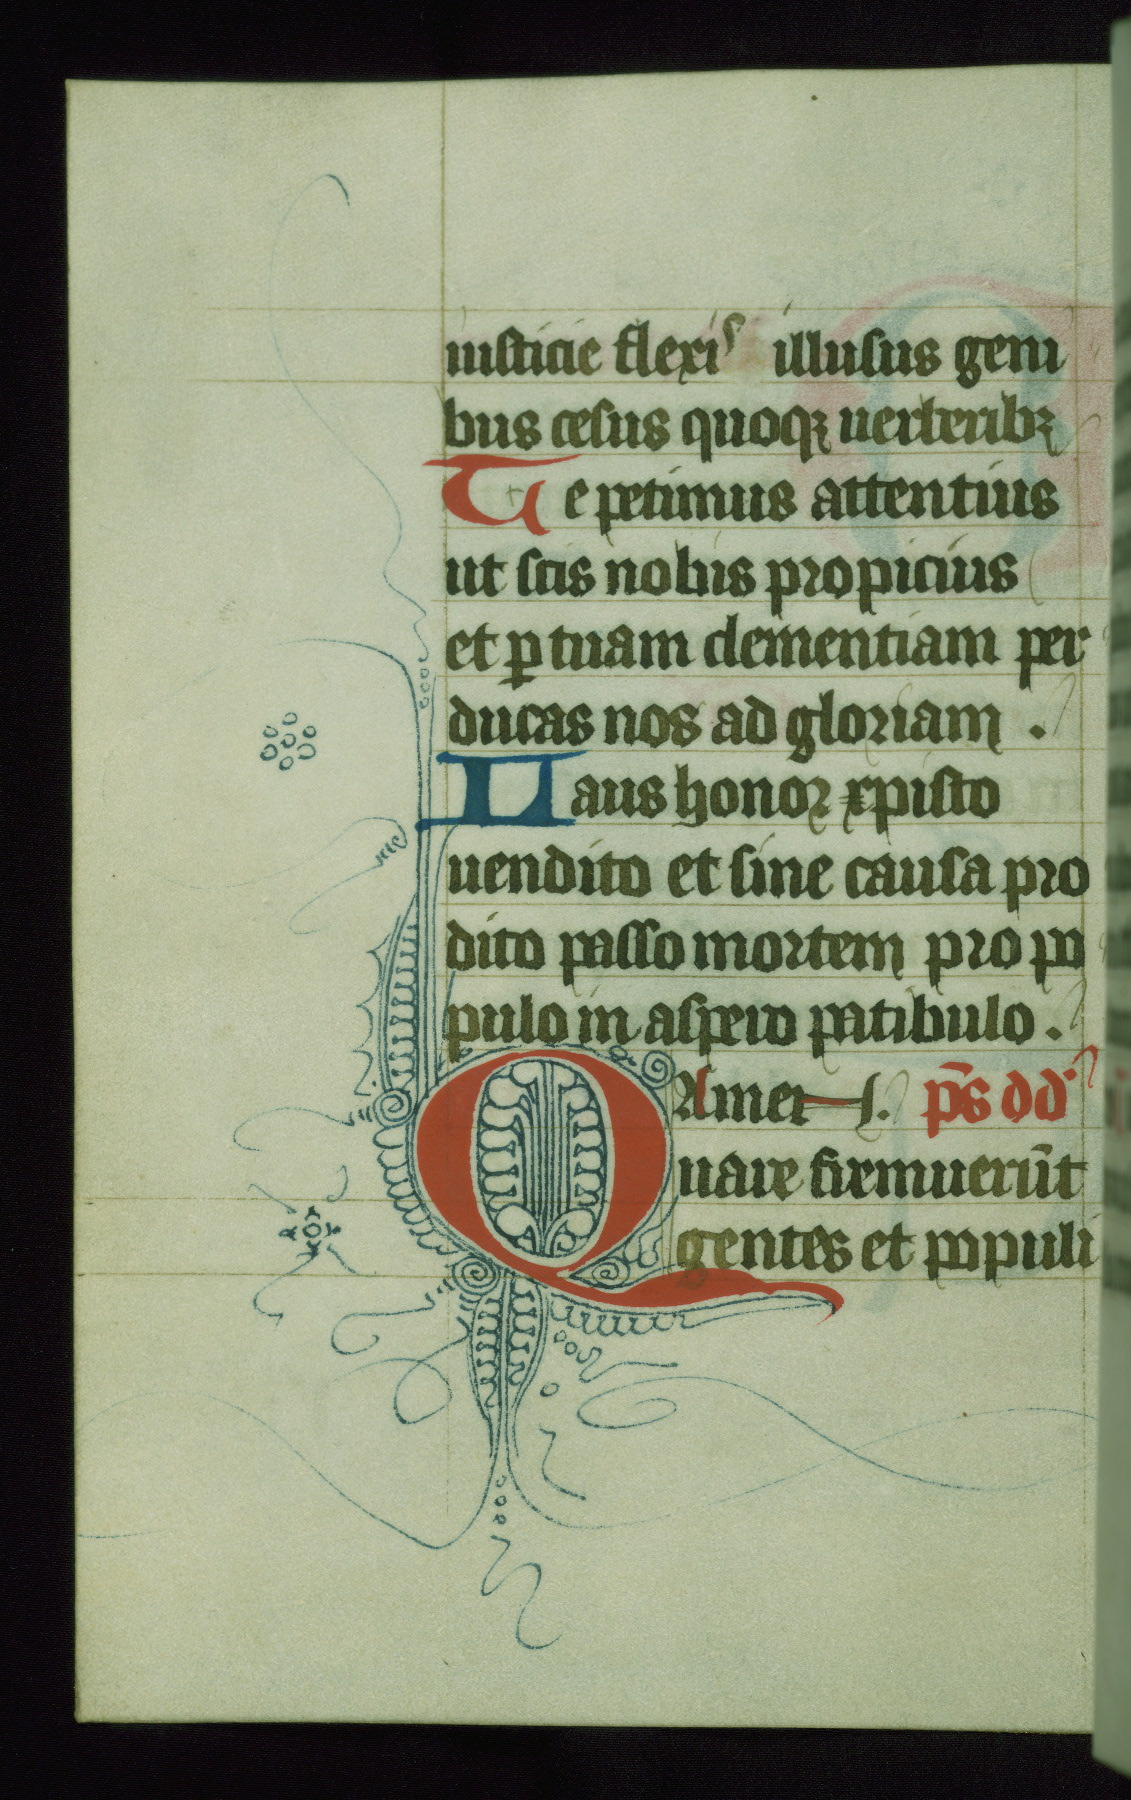 iusticie flexis illusus geni
bus cesus quoqꝫ uerberibꝫ
Te petimus attentius
ut scis nobis propicius
et ꝑ tuam clementiam per
ducas nos ad gloriam .
Laus honor xpisto
uendito et sine causa pro
dito passo mortem pro po
pulo in aspero patibulo .
Amen . p̄s dd
Quare fremuerūt
gentes et populi